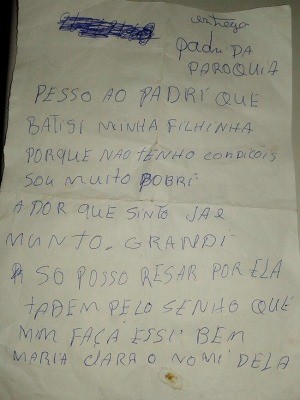 entrega
padri DA
PAROQUIA
PESSO AO PADRI QUE
BATISI MINHA FILHINHA
PORQUE NAO TENHO condicois
SOU MUITO POBRI
A DOR QUE SINTO JAE
MUNTO. GRANDI
SO POSSO RESAR POR ELA
TADEM PELO SENHO QUE
MIM FAÇA ESSI BEM
MARIA CLARA O NOMI DELA